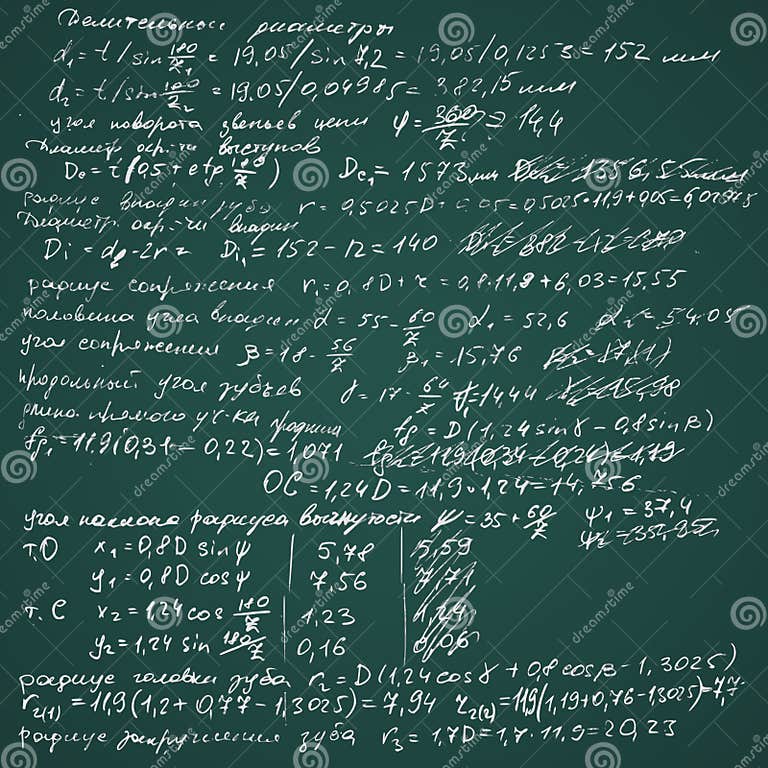 Делительные диаметры
d₁ = t / sin 180/z₁ = 19,05 / sin 7,2 = 19,05 / 0,1253 = 152 мм
d₂ = t / sin 180/z₂ = 19.05 / 0,04985 = 382,15 мм
угол поворота звеньев цепи φ = 360/z = 14,4
Диаметр окр-ти выступов
De = t (0,5 + ctg 180/z) De₁ = 1573 мм
радиус впадин зуба r = 0,5025D + 0,05 = 0,5025·11,9 + 0,05 = 6,02975
Диаметр окр-ти впадин
Di = d₂ - 2r = Di₁ = 152 - 12 = 140
радиус сопряжения r₁ = 0,8D + r = 0,8·11,9 + 6,03 = 15,55
половина угла впадин α = 55 - 60/z α₁ = 52,6
угол сопряжения β = 18 - 56/z β₁ = 15,76
продольный угол зубьев γ = 17 - 64/z γ = 14,44
длина прямого уч-ка профиля fg = D (1,24 sin γ - 0,8 sin β)
fg₁ = 11.9 (0,31 - 0,22) = 1,071
OC = 1,24D = 11,9·1,24 = 14,756
угол наклона радиуса выпуклости ψ = 35 + 60/z ψ₁ = 37,4
т.О x₁ = 0,8D sin ψ 5,78 5,59
y₁ = 0,8D cos ψ 7,56 7,71
т.С x₂ = 1,24 cos 180/z 1,23 1,24
y₂ = 1,24 sin 180/z 0,16 0,06
радиус головки зуба r₂ = D (1,24 cos γ + 0,8 cos β - 1,3025)
r₂₍₁₎ = 11,9 (1,2 + 0,77 - 1,3025) = 7,94 r₂₍₂₎ = 11,9 (1,19 + 0,76 - 1,3025) = 7,7
радиус закругления зуба r₃ = 1,7D = 1,7·11,9 = 20,23